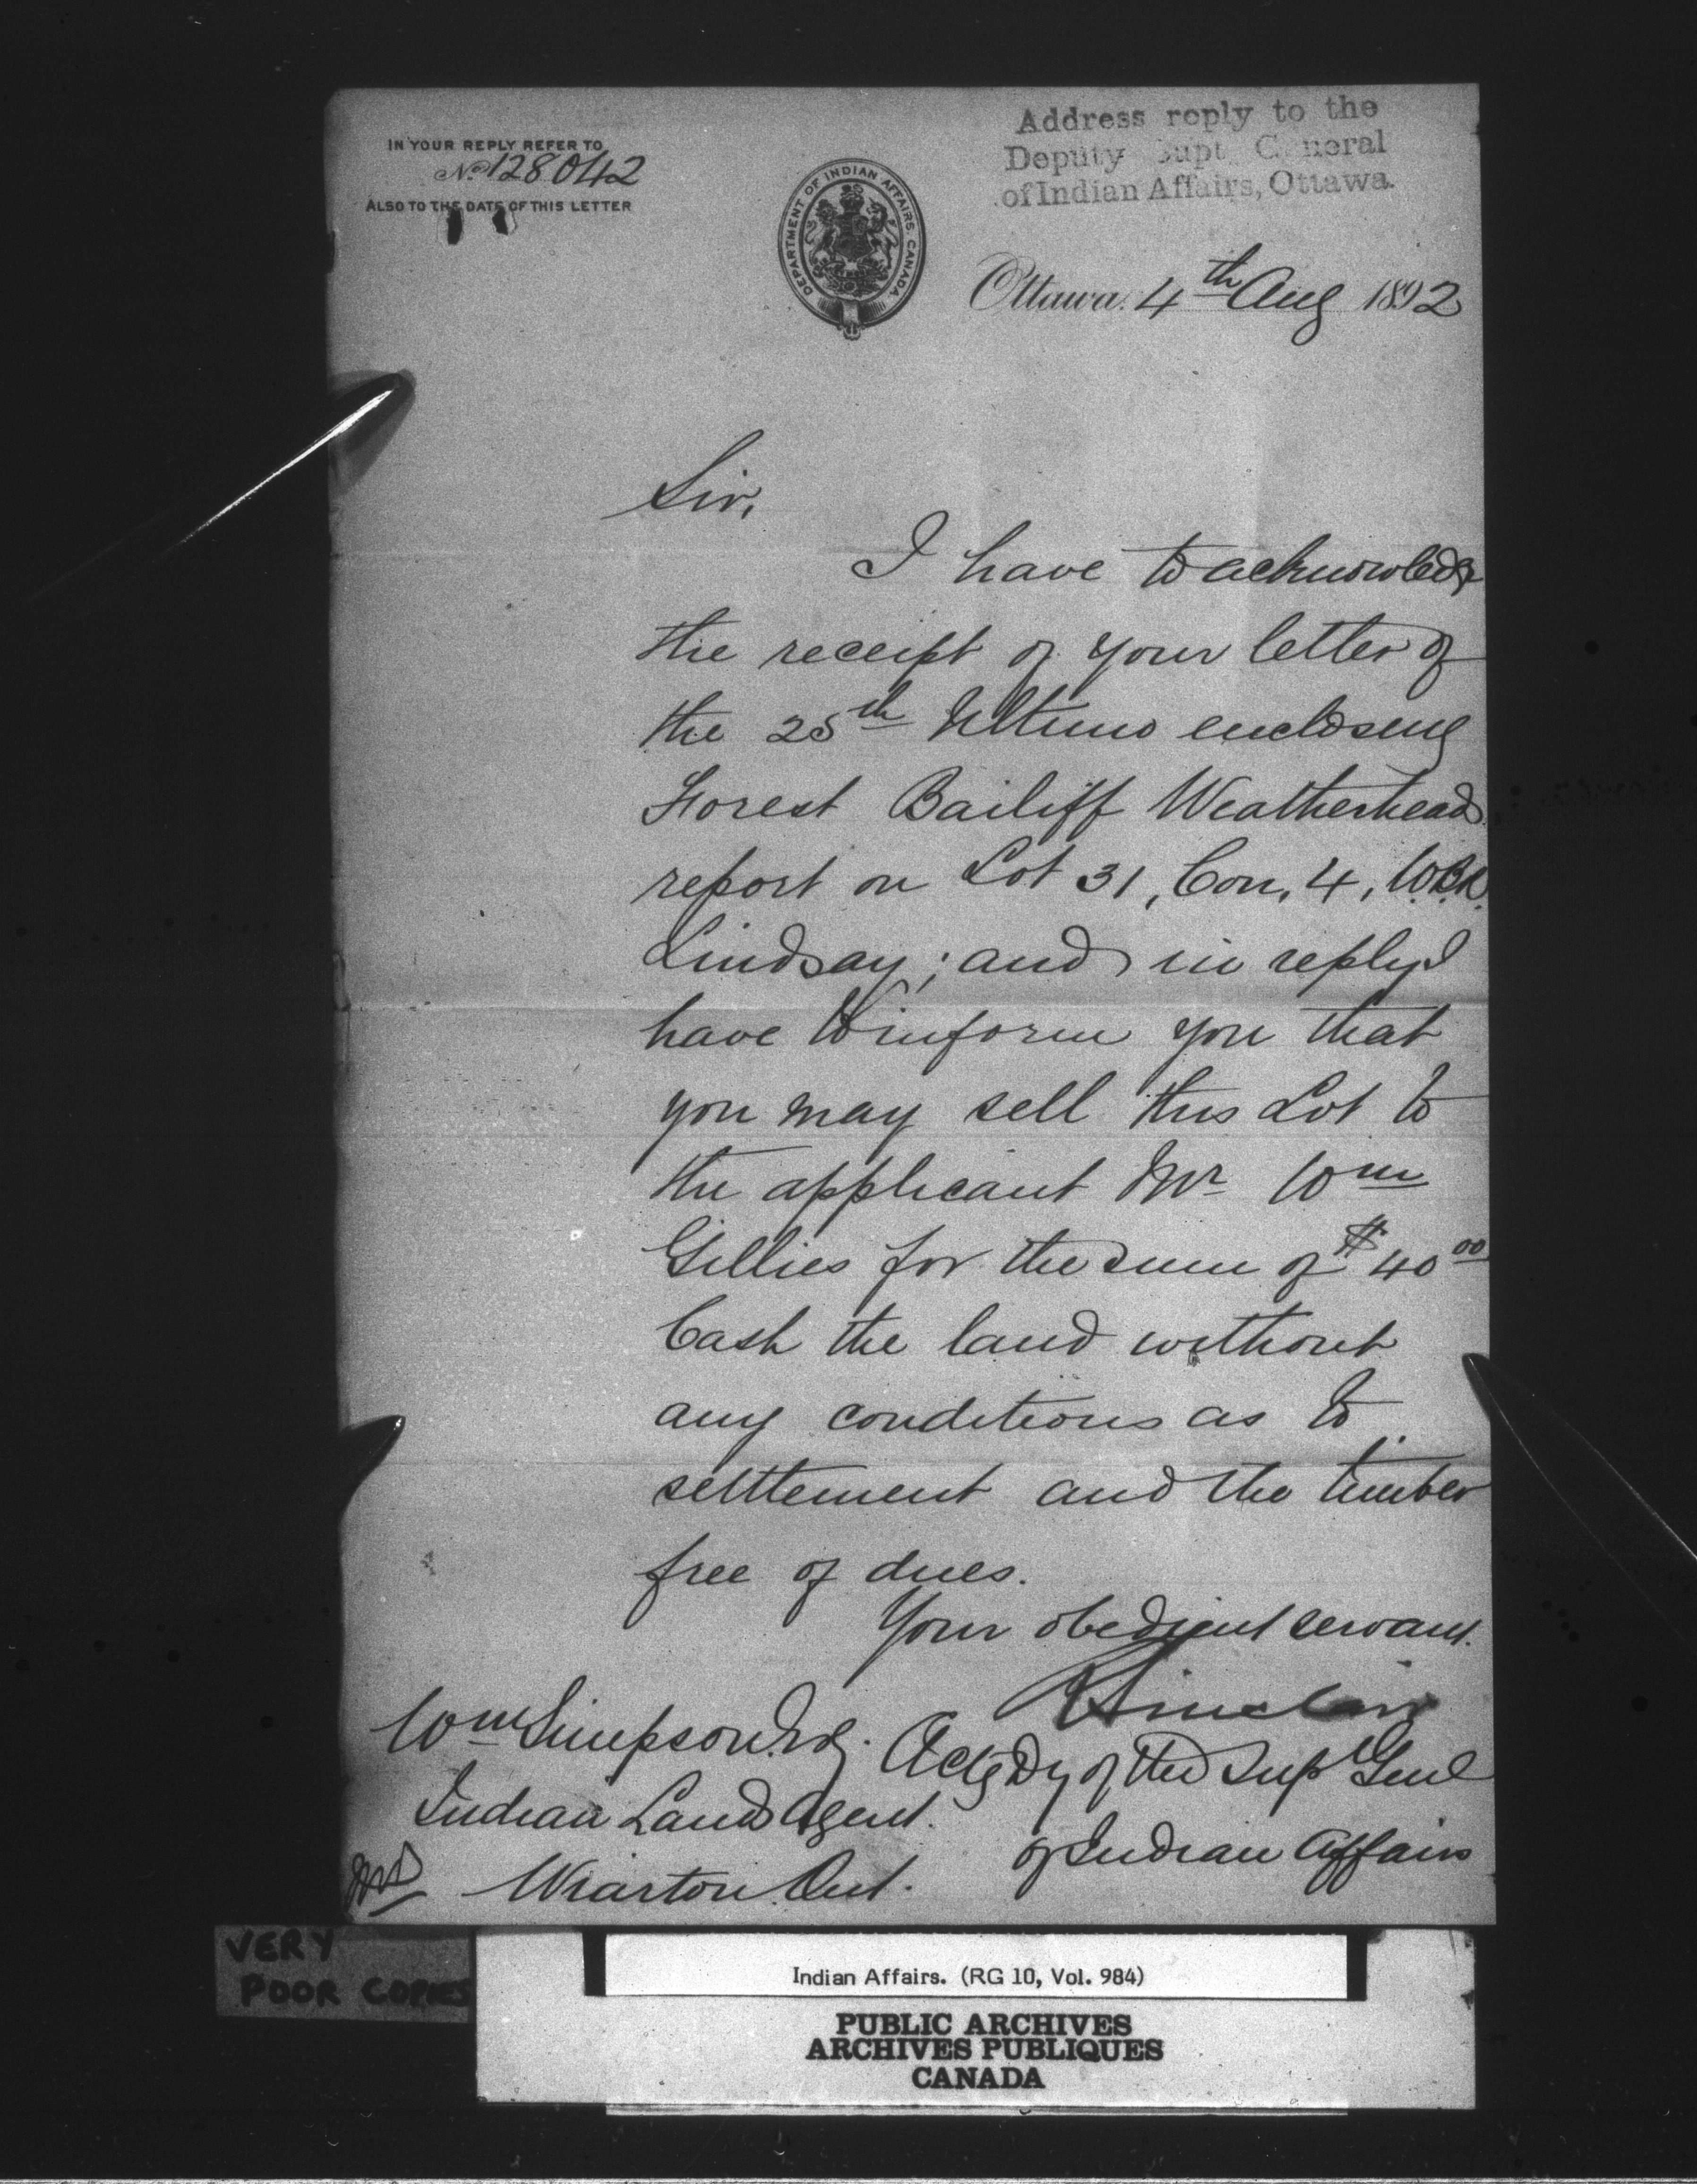 IN YOUR REPLY REFER TO
No 128042
ALSO TO THE DATE OF THIS LETTER
Address reply to the
Deputy Supt General
of Indian Affairs, Ottawa.
DEPARTMENT OF INDIAN AFFAIRS CANADA
Ottawa. 4th Aug 1892
Sir,
I have to acknowledge
the receipt of your letter of
the 25th Ultimo enclosing
Forest Bailiff Weatherheads
report on Lot 31, Con, 4, W.B.R.
Lindsay; and in reply I
have to inform you that
you may sell this Lot to
the applicant Mr Wm
Gillies for the sum of $40 00
Cash the land without
any conditions as to
settlement and the timber
free of dues.
Your obedient servant.
R Sinclair
Actg Dy of the Supt Genl
of Indian Affairs
Wm Simpson Esq.
Indian Land Agent.
Wiarton. Ont.
VERY
POOR COPIES
Indian Affairs. (RG 10, Vol. 984)
PUBLIC ARCHIVES
ARCHIVES PUBLIQUES
CANADA